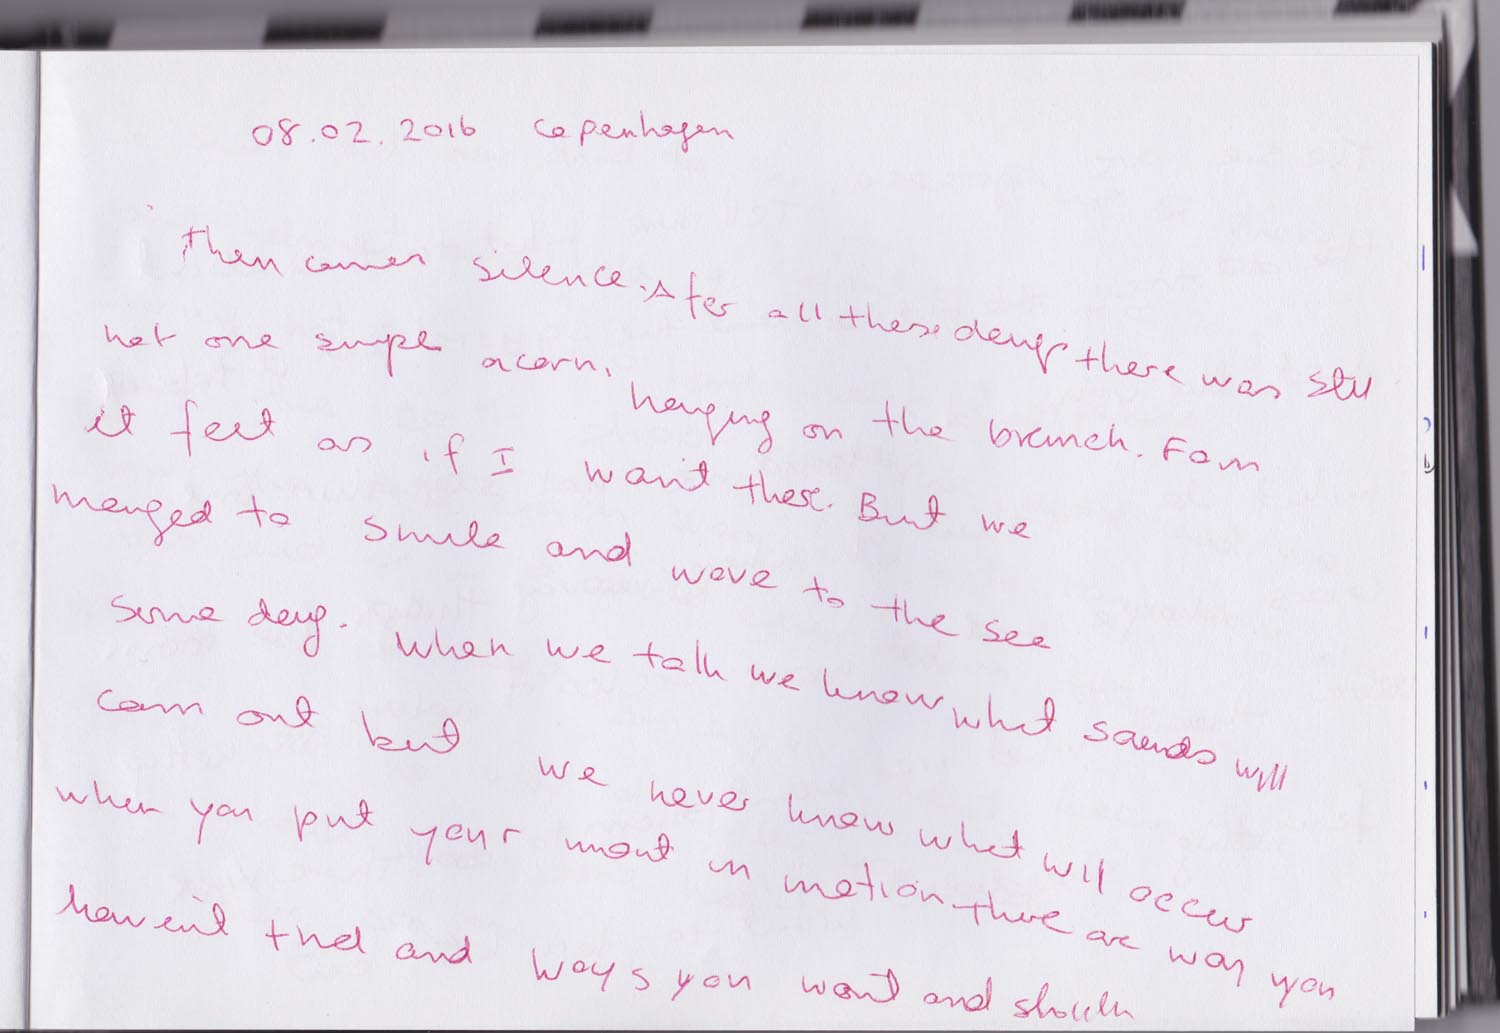 08.02.2016 Copenhagen
Then comes silence. After all these days there was still
not one simple acorn, hanging on the branch. From
it felt as if I wasn't there. But we
manged to smile and wave to the see
same day. When we talk we know what sounds will
com out but we never know what will occur
when you put your mout in motion there are way you
haven't tried and ways you wont and shouldn